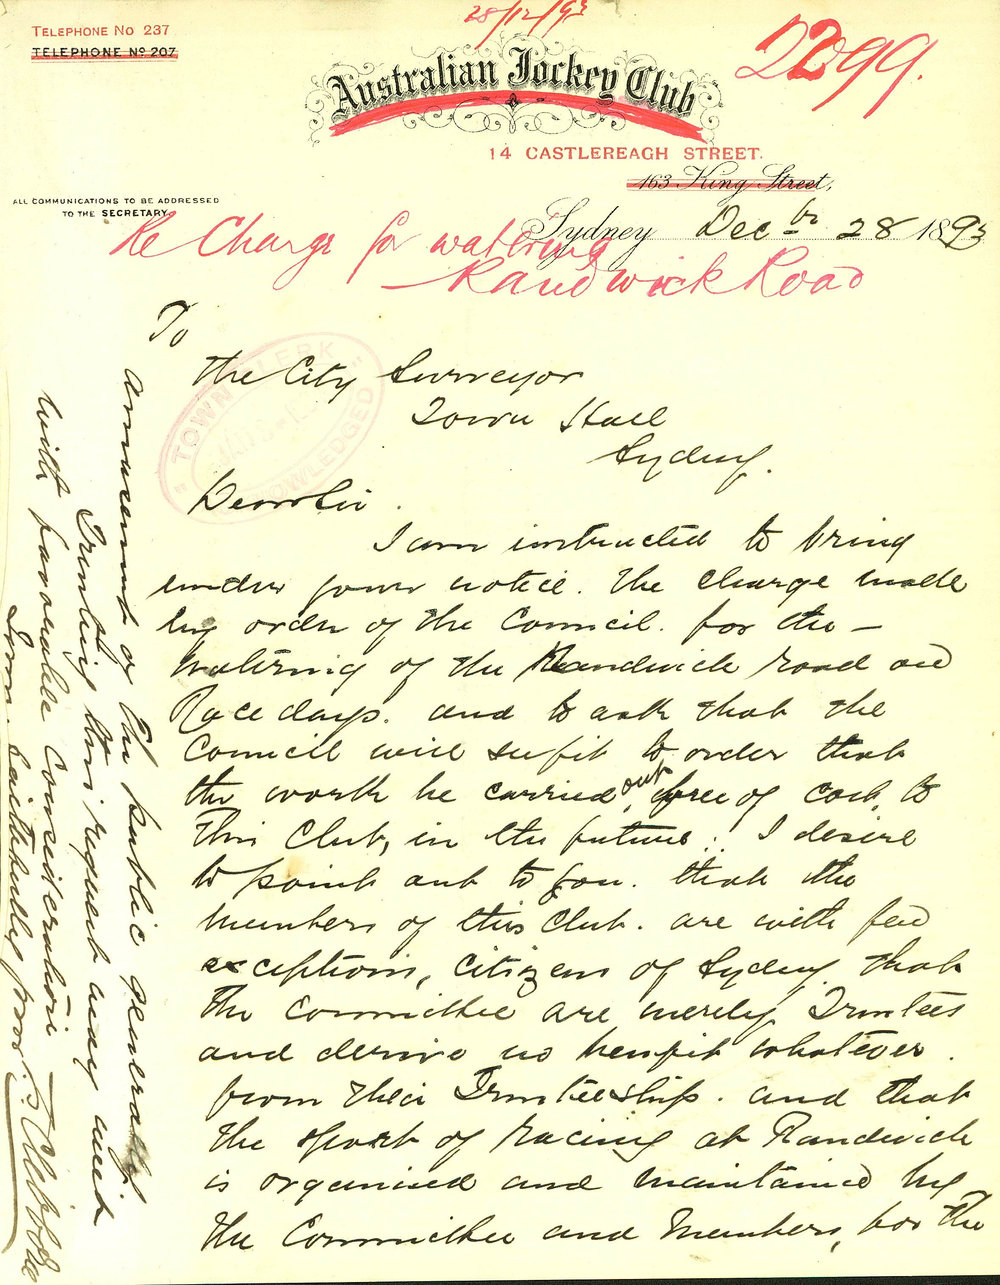 28/12/93
TELEPHONE No 237
TELEPHONE No 207
2299.
Australian Jockey Club
14 CASTLEREAGH STREET.
163 King Street,
ALL COMMUNICATIONS TO BE ADDRESSED
TO THE SECRETARY
Sydney Decbr 28 1893
Re Charge for watering
Randwick Road
TOWN CLERK
ACKNOWLEDGED
To
The City Surveyor
Town Hall
Sydney.
Dear Sir.
I am instructed to bring
under your notice. the charge made
by order of the Council. for the -
watering of the Randwick road on
Race days. and to ask that the
Council will see fit to order that
the work be carried out, free of cost, to
this Club, in the future. I desire
to point out to you. that the
members of this Club. are with few
exceptions, citizens of Sydney that
the Committee are merely Trustees
and derive no benefit whatever.
from their Trusteeship. and that
the sport of racing at Randwick
is organised and maintained by
the Committee and Members, for the
amusement of the public generally
Trusting this request may meet
with favourable consideration
I am. faithfully yours.
T S Clibborn